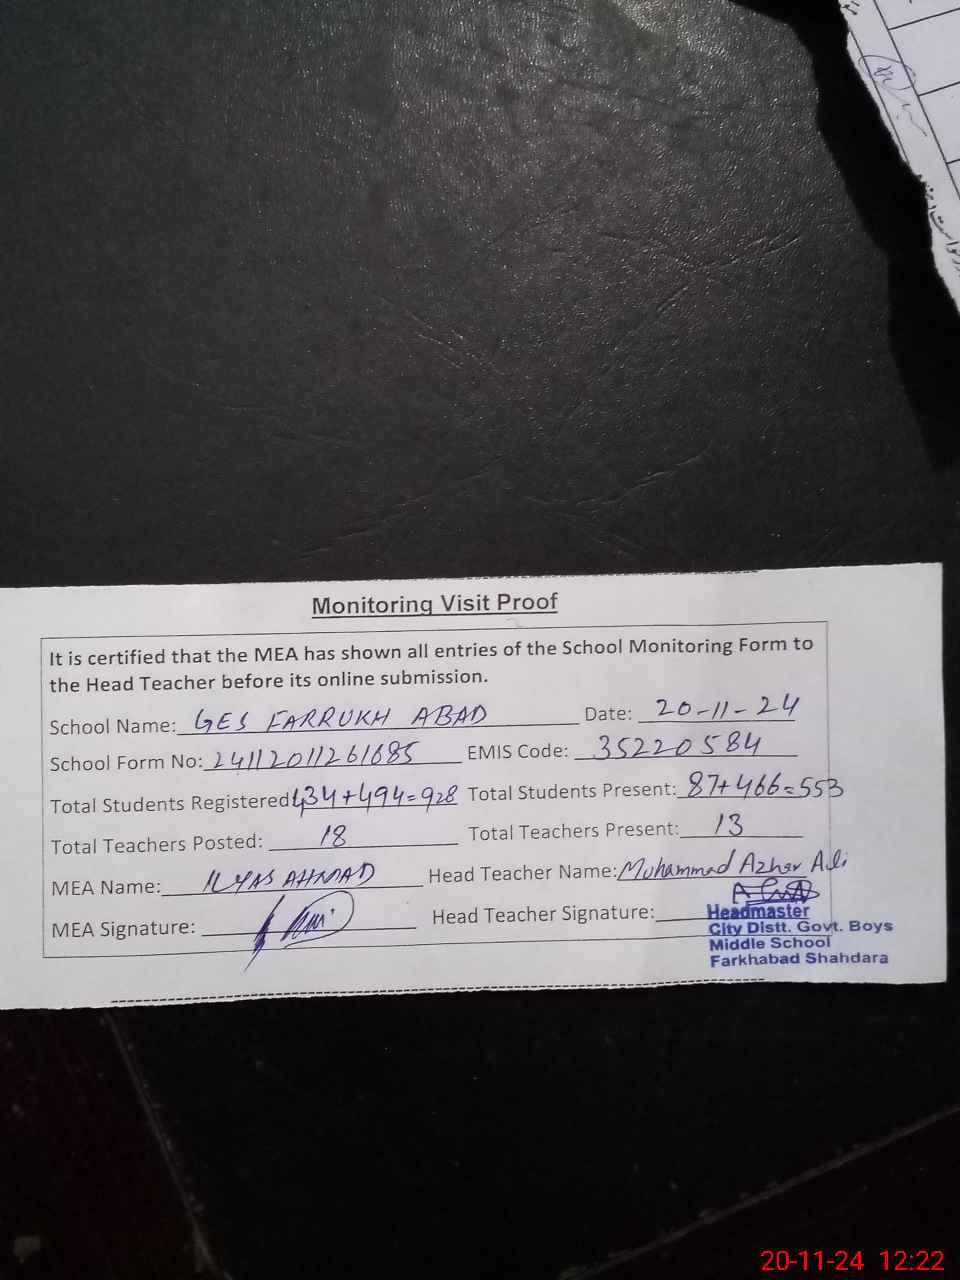 Monitoring Visit Proof
It is certified that the MEA has shown all entries of the School Monitoring Form to
the Head Teacher before its online submission.
School Name: GES FARRUKH ABAD Date: 20-11-24
School Form No: 24112011261685 EMIS Code: 35220584
Total Students Registered 434+494=928 Total Students Present: 87+466=553
Total Teachers Posted: 18 Total Teachers Present: 13
MEA Name: ILYAS AHMAD Head Teacher Name: Muhammad Azhar Ali
MEA Signature: Head Teacher Signature:
Headmaster
City Distt. Govt. Boys
Middle School
Farkhabad Shahdara
20-11-24 12:22